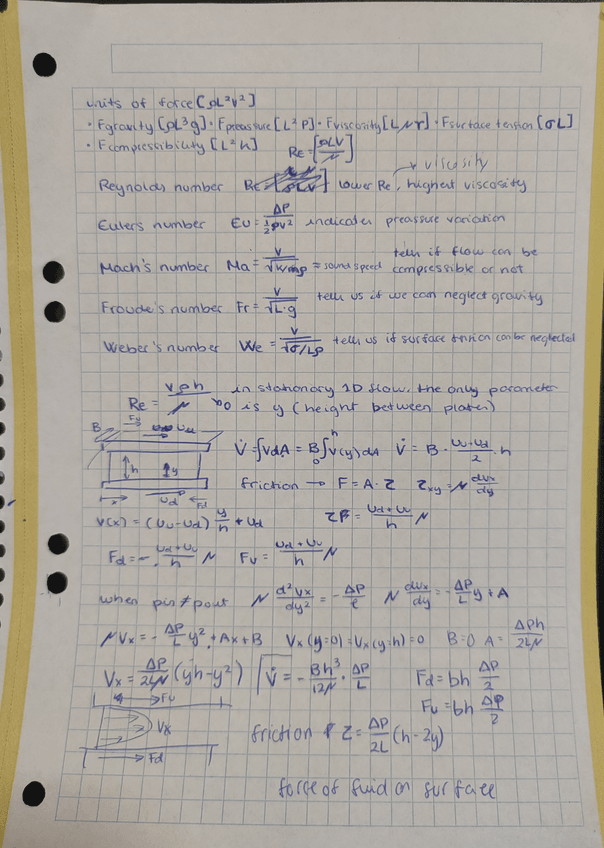 units of force [ρL²v²]
• Fgravity [ρL³g] • Fpreassure [L²P] • Fviscosity [LμV] • Fsurface tension [σL]
• Fcompressibility [L²K]
Re = [ρLV/μ]
Reynolds number Re lower Re, highest viscosity
viscosity
Eulers number Eu = ΔP/(½ρv²) indicates preassure variation
Mach's number Ma = = sound speed tells if flow can be
compressible or not
Froude's number Fr = v/√(L·g) tell us if we can neglect gravity
Weber's number We = v/√(σ/Lρ) tell us if surface tension can be neglected
Re = vρh/μ in stationary 1D flow, the only parameter
is y (height between plates)
B Fu uu
V̇ = ∫VdA = B∫₀ʰ v(y)dA V̇ = B · (uu+ud)/2 · h
h y
friction → F = A·τ τxy = μ dvx/dy
ud Fd
v(x) = (uu-ud) y/h + ud
τF = (ud+uu)/h μ
Fd = - (ud+uu)/h μ Fu = (ud+uu)/h μ
when pin ≠ pout μ d²vx/dy² = - ΔP/ℓ μ dvx/dy = - ΔP/L y + A
μVx = - ΔP/L y² + Ax + B Vx(y=0) = Vx(y=h) = 0 B=0 A = ΔPh/2Lμ
Vx = ΔP/2Lμ (yh-y²) V̇ = - Bh³/12μ · ΔP/L Fd = bh ΔP/2
Fu = bh ΔP/2
Fu
Vx
friction τ = ΔP/2L (h-2y)
Fd
force of fluid on surface